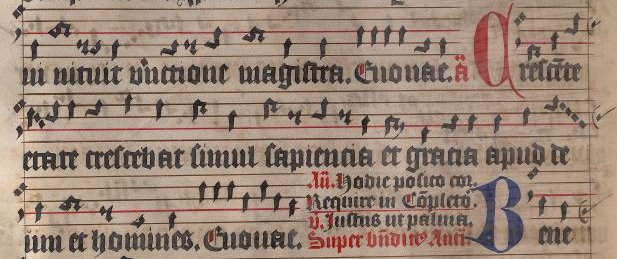 ui nituit vnctione magistra. Euouae. a Crescēte
etate crescebat simul sapientia et gratia apud de
um et homines. Euouae.
Hodie posito cor.
Require in Cōpletō.
v. Justus ut palma.
Super Bene